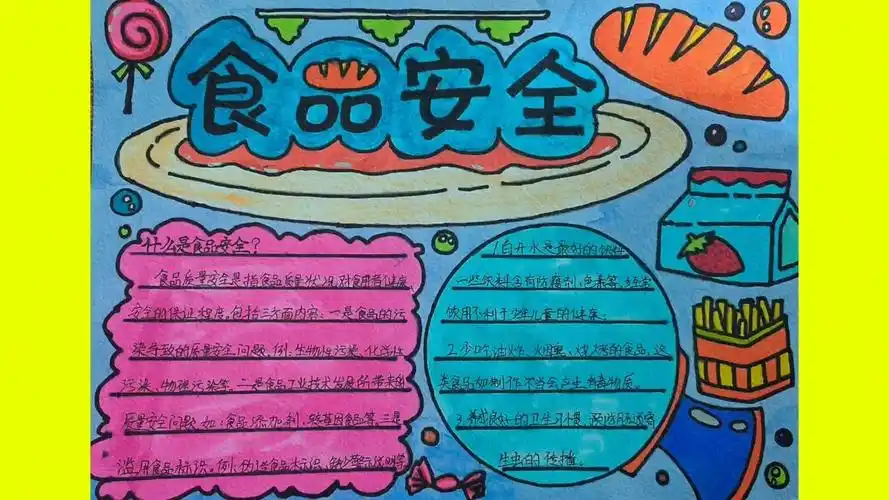 食品安全
什么是食品安全?
食品质量安全是指食品质量状况对食用者健康、
安全的保证程度。包括三方面内容:一是食品的污
染导致的质量安全问题。例:生物性污染、化学性
污染、物理污染等。二是食品工业技术发展的带来的
质量安全问题。如:食品添加剂、转基因食品等。三是
滥用食品标识。例:伪造食品标识、缺少警示说明等
1.白开水是最好的饮料
一些饮料含有防腐剂、色素等,经常
饮用不利于少年儿童的健康。
2.少吃油炸、烟熏、烧烤的食品,这
类食品如制作不当会产生有毒物质。
3.养成良好的卫生习惯,预防肠道寄
生虫的传播。